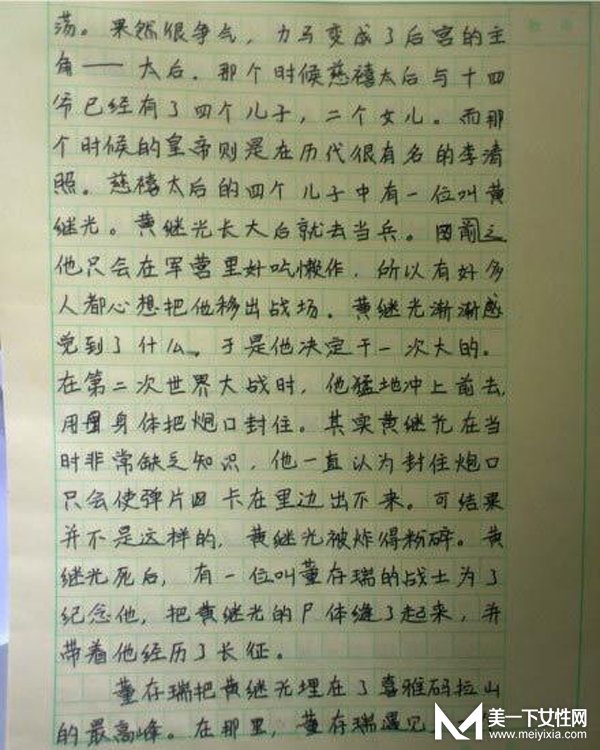 荡。果然很争气，立马变成了后宫的主
角——太后。那个时候慈禧太后与十四
爷已经有了四个儿子，二个女儿。而那
个时候的皇帝则是在历代很有名的李清
照。慈禧太后的四个儿子中有一位叫黄
继光。黄继光长大后就去当兵。
他只会在军营里好吃懒作，所以有好多
人都心想把他移出战场。黄继光渐渐感
觉到了什么，于是他决定干一次大的。
在第二次世界大战时，他猛地冲上前去，
用身体把炮口封住。其实黄继光在当
时非常缺乏知识，他一直认为封住炮口
只会使弹片卡在里边出不来。可结果
并不是这样的，黄继光被炸得粉碎。黄
继光死后，有一位叫董存瑞的战士为了
纪念他，把黄继光的尸体缝了起来，并
带着他经历了长征。
董存瑞把黄继光埋在了喜雅码拉山
的最高峰。在那里，董存瑞遇见
美一下女性网
www.meiyixia.com